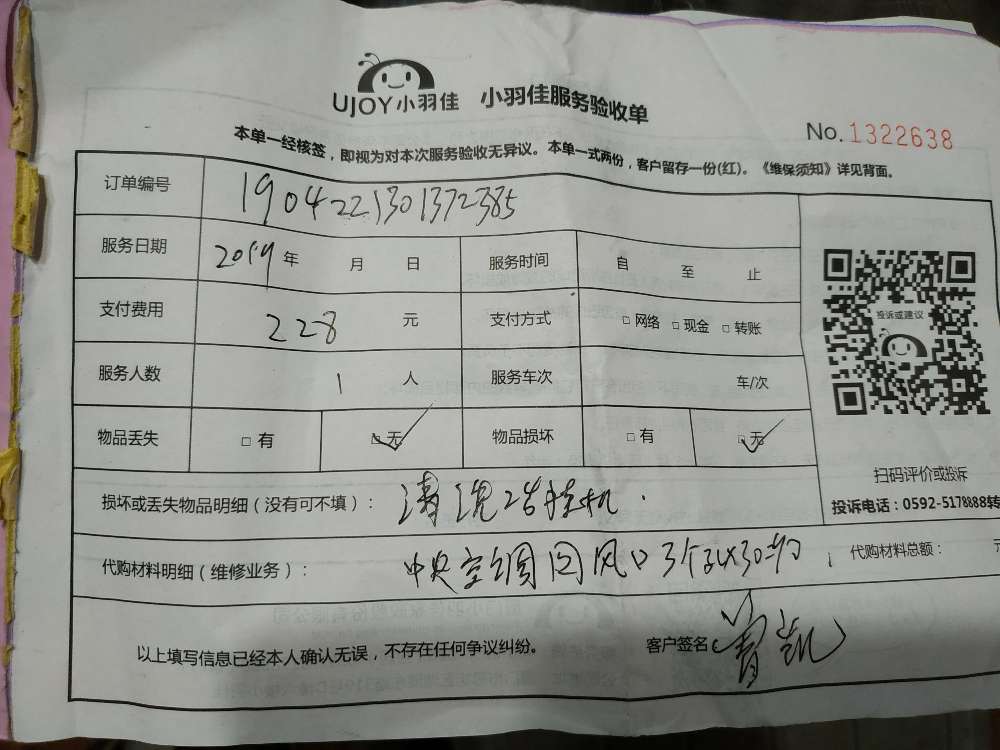 UJOY小羽佳 小羽佳服务验收单
No.1322638
本单一经核签，即视为对本次服务验收无异议。本单一式两份，客户留存一份(红)。《维保须知》详见背面。
订单编号 190422130137 2385
服务日期 2019年 月 日 服务时间 自 至 止
支付费用 228 元 支付方式 □ 网络 □ 现金 □ 转账
服务人数 1 人 服务车次 车/次
物品丢失 □ 有 □ 无 物品损坏 □ 有 □ 无
投诉或建议
扫码评价或投诉
投诉电话：0592-5178888转
损坏或丢失物品明细（没有可不填）： 清洗2台挂机.
代购材料明细（维修业务）： 中央空调回风口3个 代购材料总额： 元
以上填写信息已经本人确认无误，不存在任何争议纠纷。 客户签名 曾凯